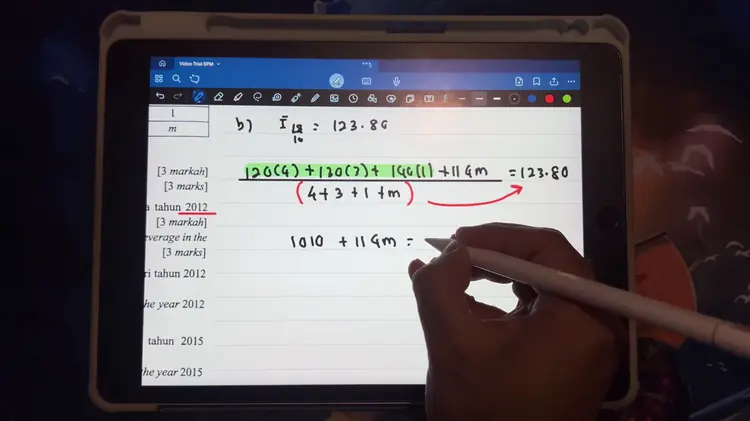 Video Trial SPM
1
m
[3 markah]
[3 marks]
a tahun 2012
[3 markah]
everage in the
[3 marks]
ri tahun 2012
he year 2012
tahun 2015
he year 2015
b) Ī 12/10 = 123.80
120(4) + 130(3) + 140(1) + 114m = 123.80
(4 + 3 + 1 + m)
1010 + 114m =